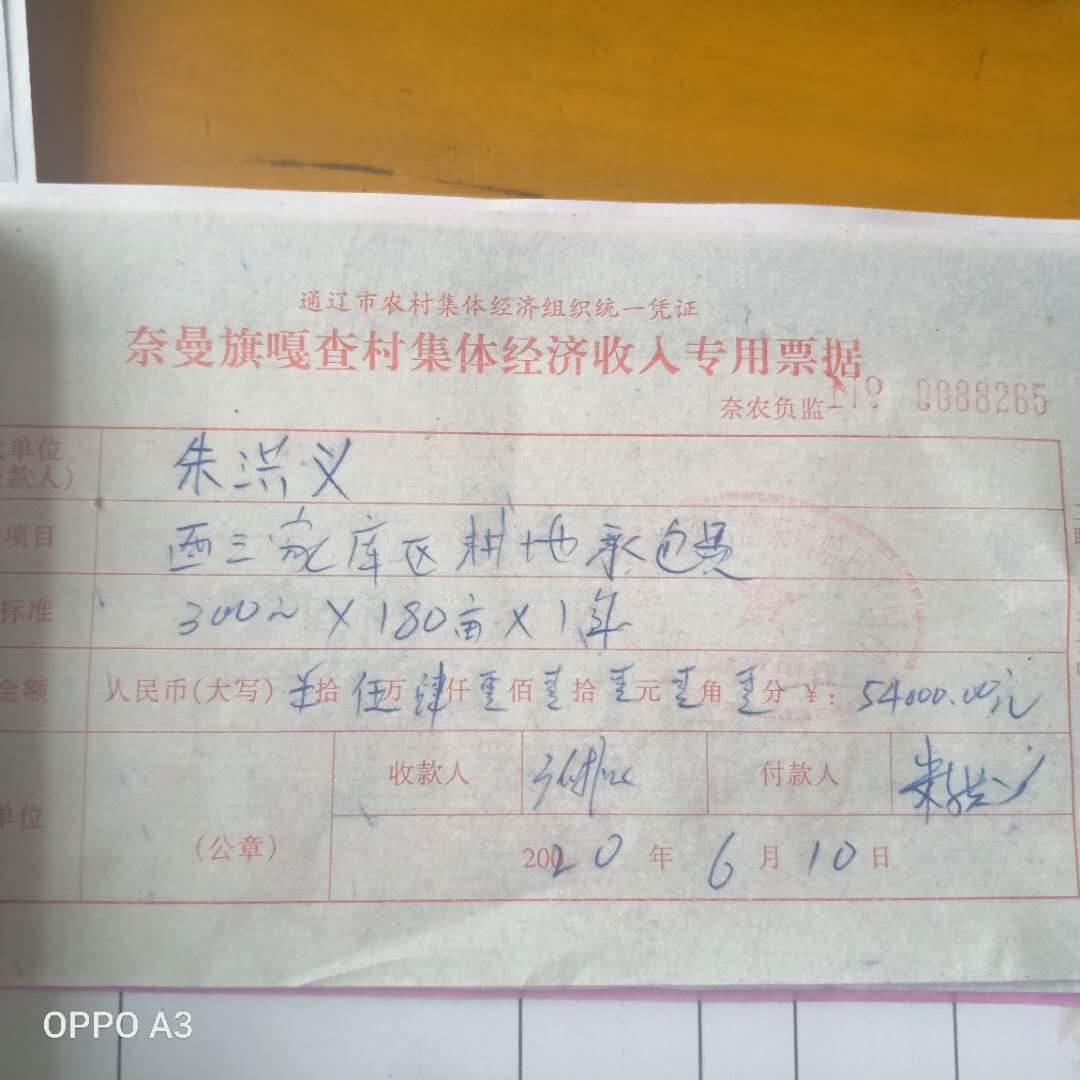 通辽市农村集体经济组织统一凭证
奈曼旗嘎查村集体经济收入专用票据
奈农负监 No 0088265
单位
款人) 朱洪义
项目 西三家库区耕地承包费
标准 300元 X 180亩 X 1年
金额 人民币(大写) 拾 伍万肆仟 佰 拾 元 角 分 ¥: 54000.00元
收款人 付款人 朱洪义
单位 (公章) 2020年6月10日
OPPO A3